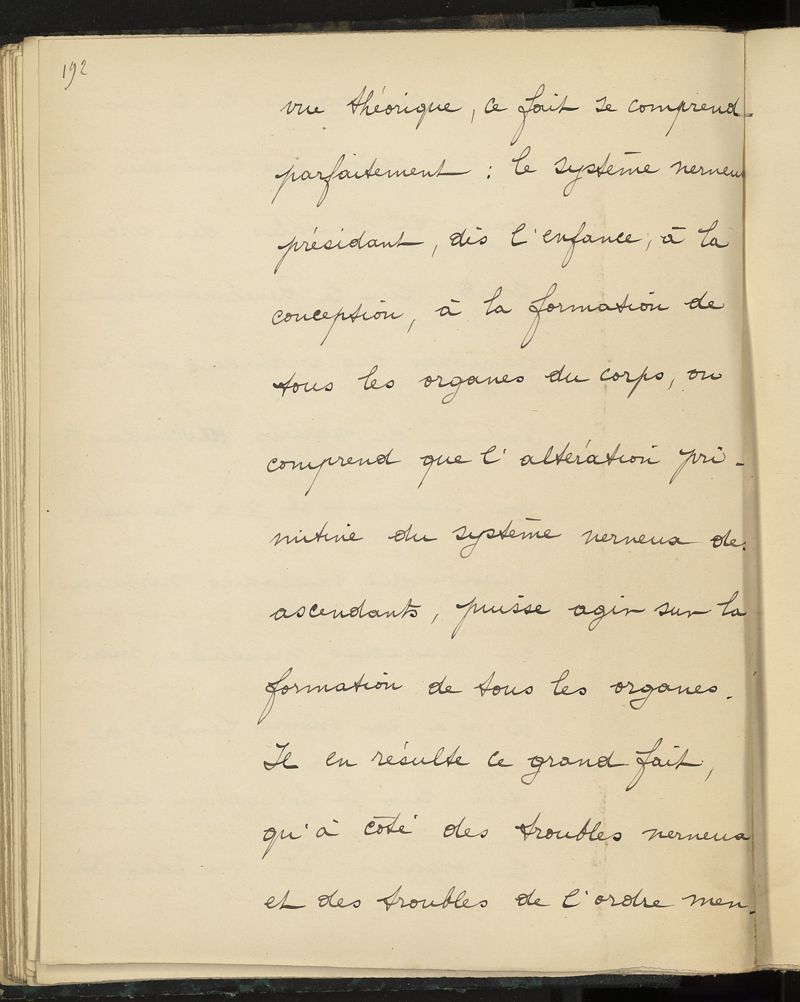 192
vue théorique, ce fait se comprend
parfaitement : le système nerveux
présidant, dès l'enfance, à la
conception, à la formation de
tous les organes du corps, on
comprend que l'altération pri-
mitive du système nerveux des
ascendants, puisse agir sur la
formation de tous les organes.
Il en résulte ce grand fait,
qu'à côté des troubles nerveux
et des troubles de l'ordre men-